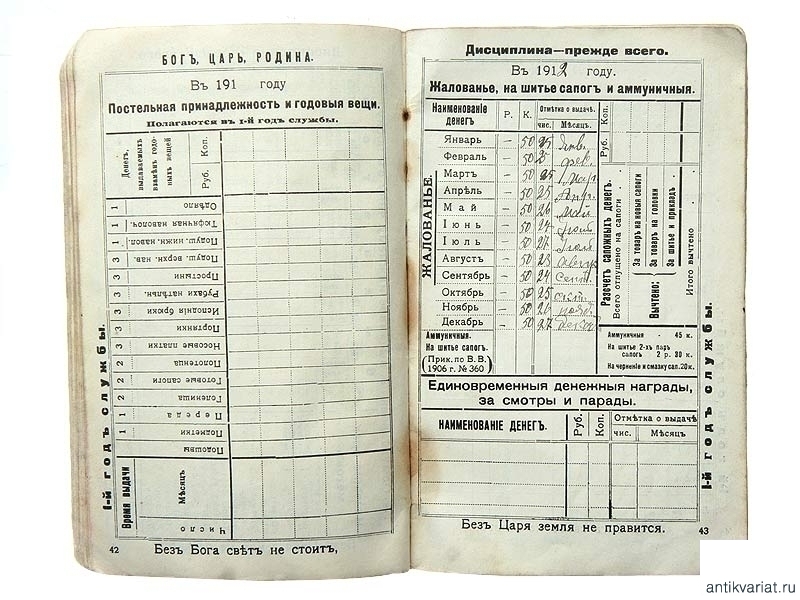 БОГЪ, ЦАРЬ, РОДИНА.
Въ 191 году
Постельная принадлежность и годовыя вещи.
Полагаются въ 1-й годъ службы.
Денегъ, выдаваемыхъ взамѣнъ годовыхъ вещей
Руб. Коп.
Одѣяло 1
Тюфячная наволоч. 1
Подуш. нижн. навол. 1
Подуш. верхн. нав. 3
Простыни 3
Рубахи нательн. 3
Исподнія брюки 3
Портянки 3
Носовые платки 3
Полотенца 2
Готовые сапоги 2
Голенища 2
Переда 1
Подметки 1
Подошвы
Время выдачи
Мѣсяцъ
Число
1-й годъ службы
42
Безъ Бога свѣтъ не стоитъ,
Дисциплина—прежде всего.
Въ 1912 году.
Жалованье, на шитье сапогъ и аммуничныя.
Наименованіе денегъ Р. К. Отмѣтка о выдачѣ.
чис. Мѣсяцъ.
ЖАЛОВАНЬЕ.
Январь – 50 25 Янв.
Февраль – 50 25 фев.
Мартъ – 50 25 Мар
Апрѣль – 50 25 Апр.
Май – 50 26 май
Іюнь – 50 27
Іюль – 50 27
Августъ – 50 23 Август
Сентябрь – 50 24 сент.
Октябрь – 50 25 окт.
Ноябрь – 50 26 нояб.
Декабрь – 50 27
Аммуничныя.
На шитье сапогъ.
(Прик. по В. В. 1906 г. № 360)
Руб. Коп.
Разсчетъ сапожныхъ денегъ.
Всего отпущено на сапоги
Вычтено:
За товаръ на новыя сапоги
За товаръ на головки
За шитье и прикладъ
Итого вычтено
Аммуничныя - 45 к.
На шитье 2-хъ паръ
сапогъ 2 р. 30 к.
На черненіе и смазку сап. 20 к.
Единовременныя денежныя награды,
за смотры и парады.
НАИМЕНОВАНІЕ ДЕНЕГЪ. Руб. Коп. Отмѣтка о выдачѣ
чис. Мѣсяцъ
1-й годъ службы.
Безъ Царя земля не правится.
43
antikvariat.ru